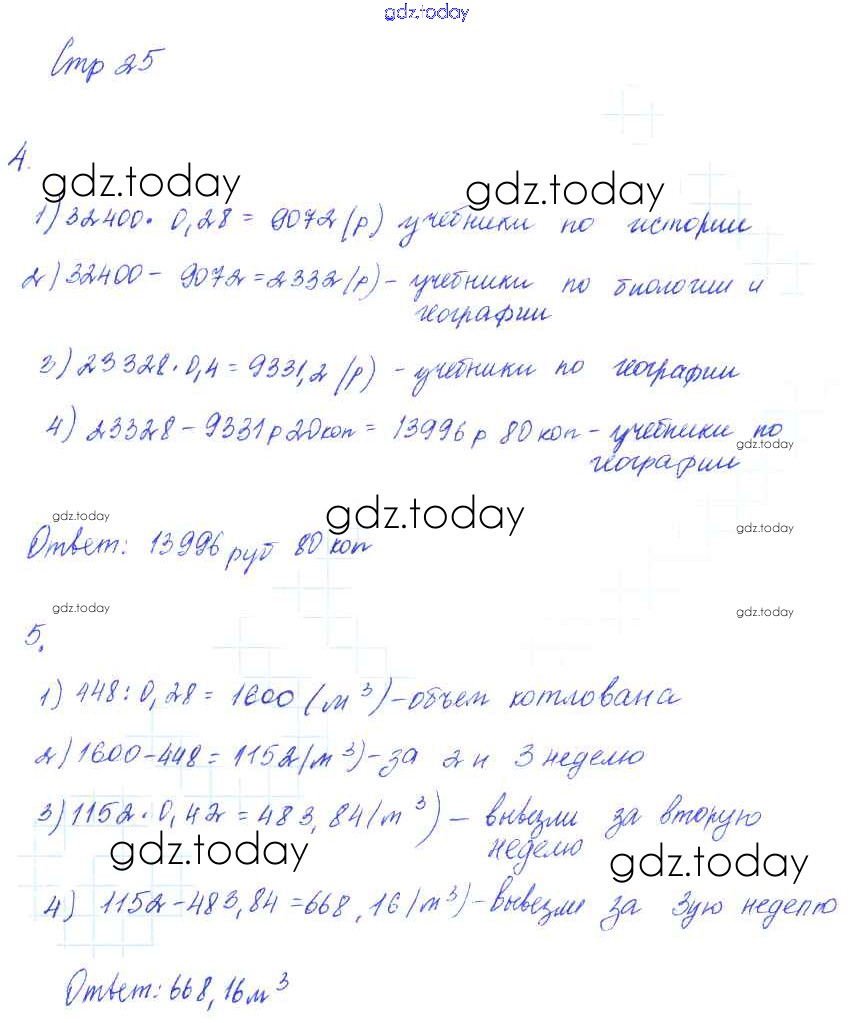 gdz.today
Стр 25
4.
gdz.today gdz.today
1) 32400 · 0,28 = 9072 (р) учебники по истории
2) 32400 - 9072 = 2332 (р) - учебники по биологии и
географии
3) 23328 · 0,4 = 9331,2 (р) - учебники по географии
4) 23328 - 9331 р 20 коп = 13996 р 80 коп - учебники по
gdz.today
географии
gdz.today gdz.today gdz.today
Ответ: 13996 руб 80 коп
gdz.today gdz.today
5.
1) 448 : 0,28 = 1600 (м³) - объем котлована
2) 1600 - 448 = 1152 (м³) - за 2 и 3 неделю
3) 1152 · 0,42 = 483,84 (м³) - вывезли за вторую
неделю
gdz.today gdz.today
4) 1152 - 483,84 = 668,16 (м³) - вывезли за 3ую неделю
Ответ: 668,16 м³